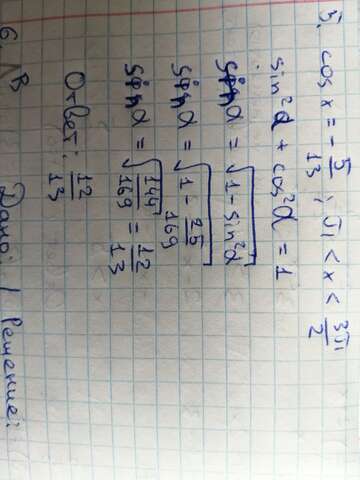 5. cos x = -5/13 ; π < x < 3π/2
sin²α + cos²α = 1
sinα = √(1 - sin²α)
sinα = √(1 - 25/169)
sinα = √(144/169) = 12/13
Ответ: 12/13
6. В Дано: / Решение: